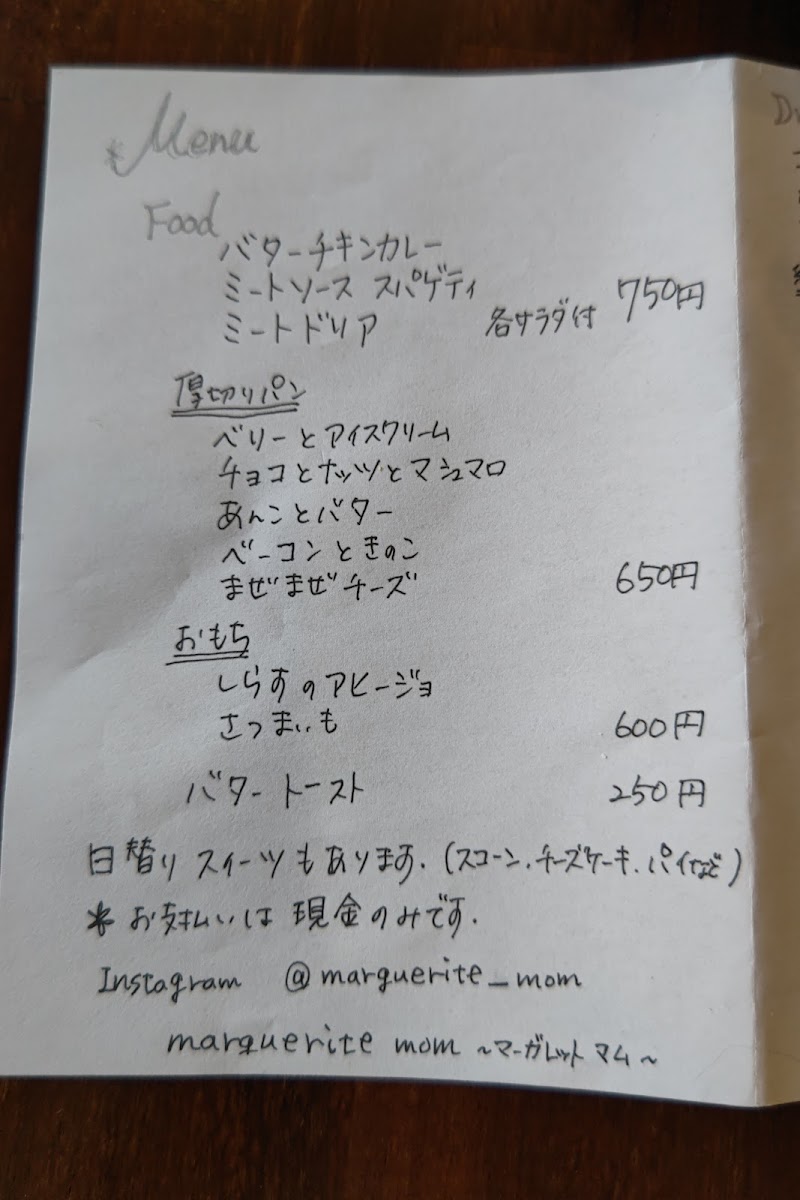 *Menu
Food
バターチキンカレー
ミートソース スパゲティ
ミートドリア 各サラダ付 750円
厚切りパン
ベリーとアイスクリーム
チョコとナッツとマシュマロ
あんことバター
ベーコンときのこ
まぜまぜチーズ 650円
おもち
しらすのアヒージョ
さつまいも 600円
バタートースト 250円
日替りスイーツもあります.(スコーン.チーズケーキ.パイなど)
* お支払いは現金のみです.
Instagram @marguerite_mom
marguerite mom ~マーガレット マム~